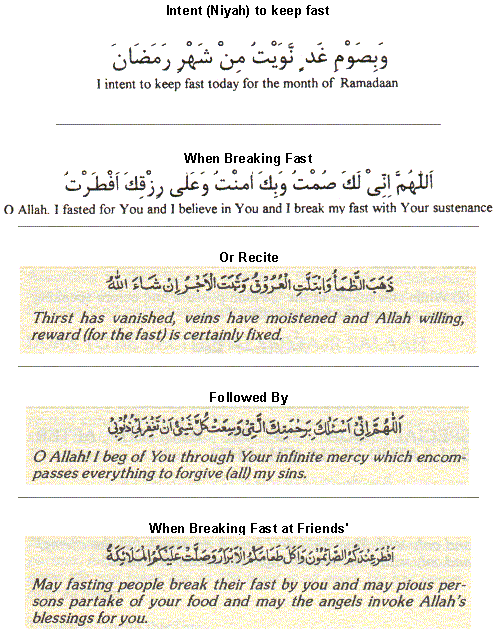 Intent (Niyah) to keep fast
وَبِصَوْمِ غَدٍ نَّوَيْتُ مِنْ شَهْرِ رَمَضَانَ
I intent to keep fast today for the month of Ramadaan
When Breaking Fast
اَللّٰهُمَّ اِنِّىْ لَكَ صُمْتُ وَبِكَ اٰمَنْتُ وَعَلٰى رِزْقِكَ اَفْطَرْتُ
O Allah. I fasted for You and I believe in You and I break my fast with Your sustenance
Or Recite
ذَهَبَ الظَّمَأُ وَابْتَلَّتِ الْعُرُوْقُ وَثَبَتَ الْاَجْرُ اِنْ شَاءَ اللهُ
Thirst has vanished, veins have moistened and Allah willing,
reward (for the fast) is certainly fixed.
Followed By
اَللّٰهُمَّ اِنِّىْ اَسْئَلُكَ بِرَحْمَتِكَ الَّتِىْ وَسِعَتْ كُلَّ شَيْئٍ اَنْ تَغْفِرَ لِىْ ذُنُوْبِىْ
O Allah! I beg of You through Your infinite mercy which encom-
passes everything to forgive (all) my sins.
When Breaking Fast at Friends'
اَفْطَرَ عِنْدَكُمُ الصَّائِمُوْنَ وَاَكَلَ طَعَامَكُمُ الْاَبْرَارُ وَصَلَّتْ عَلَيْكُمُ الْمَلَائِكَةُ
May fasting people break their fast by you and may pious per-
sons partake of your food and may the angels invoke Allah's
blessings for you.